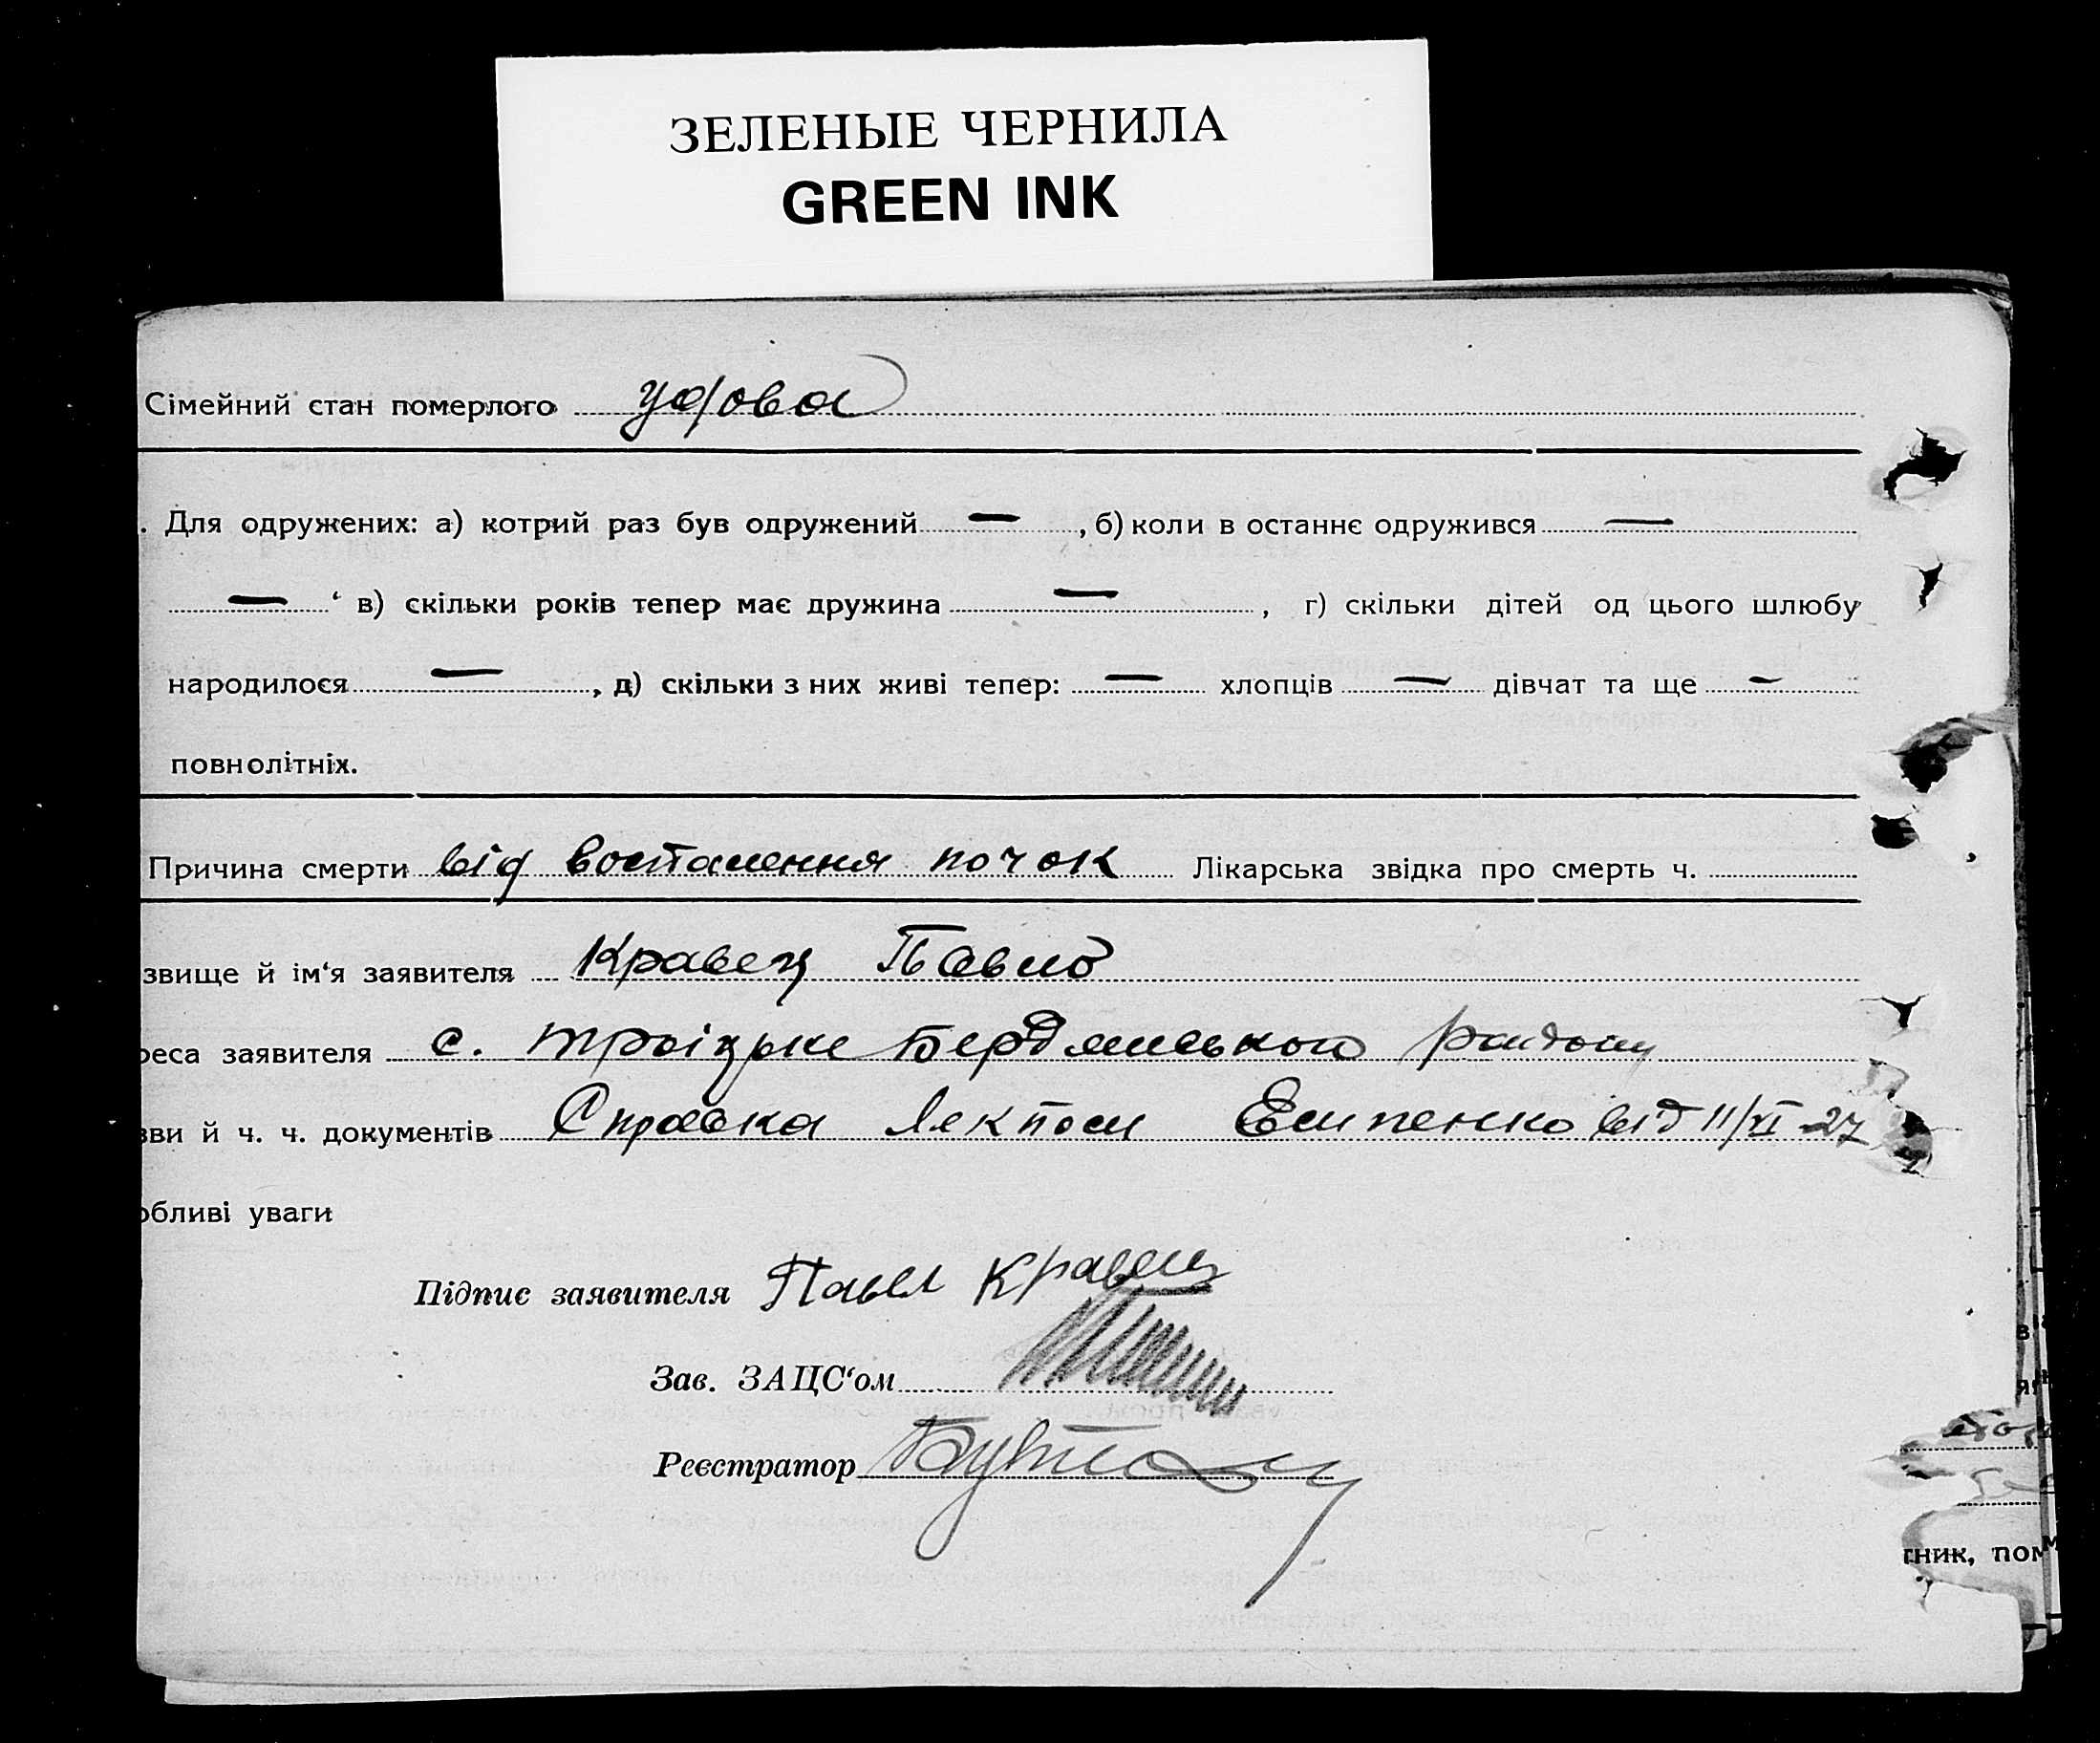 ЗЕЛЕНЫЕ ЧЕРНИЛА
GREEN INK
Сімейний стан померлого удова
. Для одружених: а) котрий раз був одружений — , б) коли в останнє одружився —
— ‘ в) скільки років тепер має дружина — , г) скільки дітей од цього шлюбу
народилося — , д) скільки з них живі тепер: — хлопців — дівчат та ще —
повнолітніх.
Причина смерти від воспалення почок Лікарська звідка про смерть ч.
звище й ім‘я заявителя Кравец Павло
реса заявителя с. Троізьке Бердянського району
зви й ч. ч. документів Справка від 11/VI-27
обливі уваги
Підпис заявителя Павел Кравец
Зав. ЗАЦС‘ом
Реєстратор
гник, пом